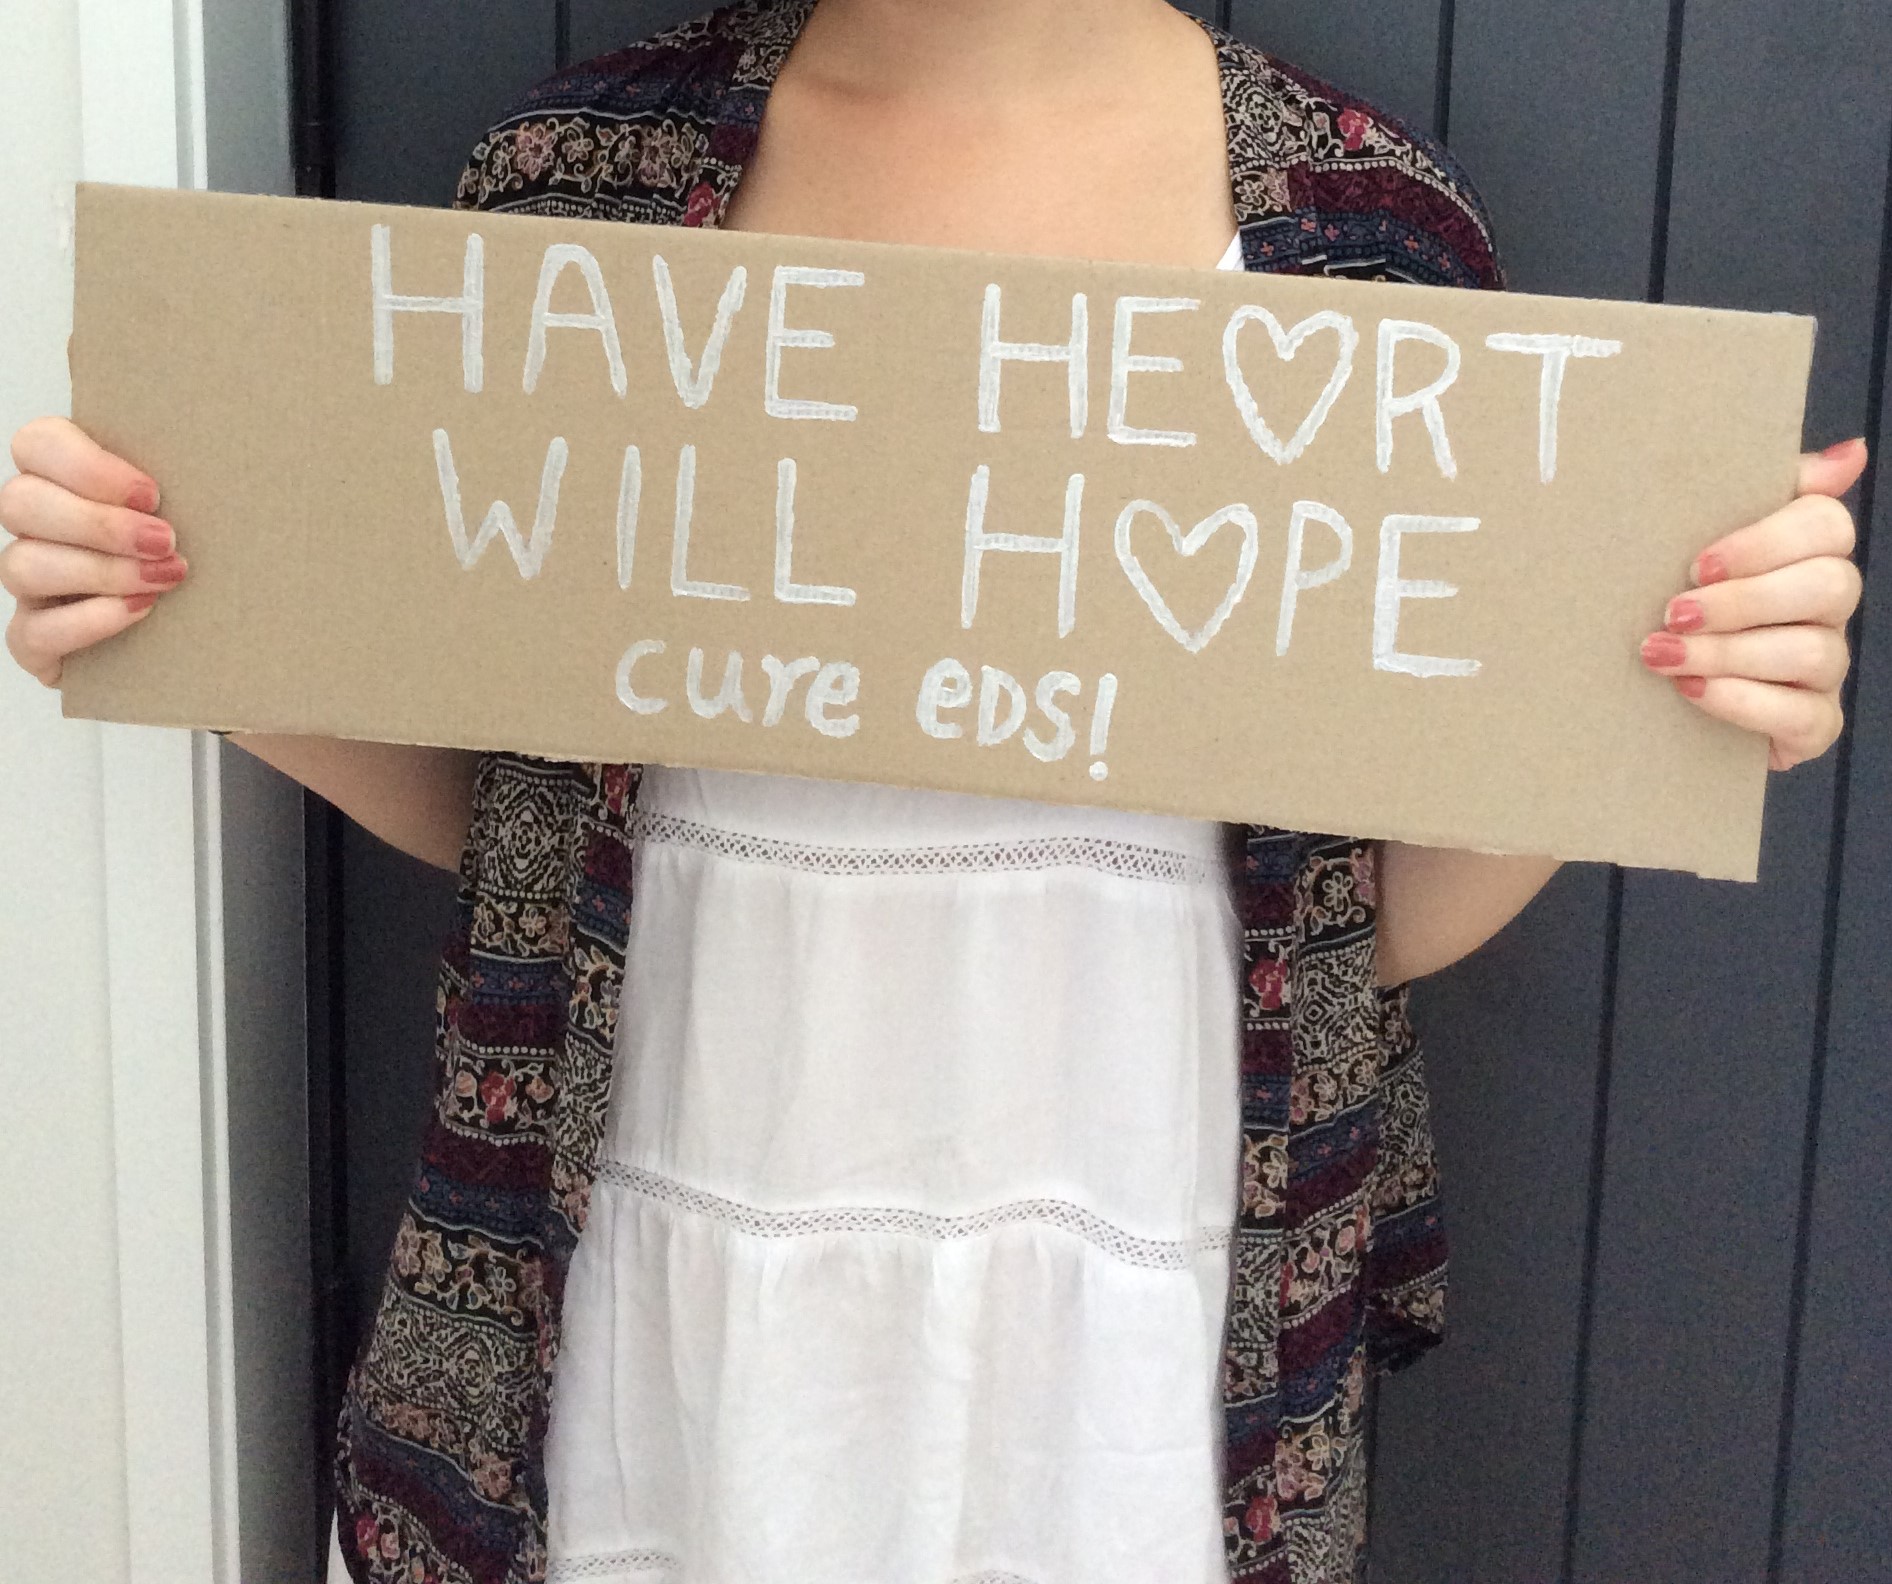 HAVE HE♡RT
WILL H♡PE
cure eDS!